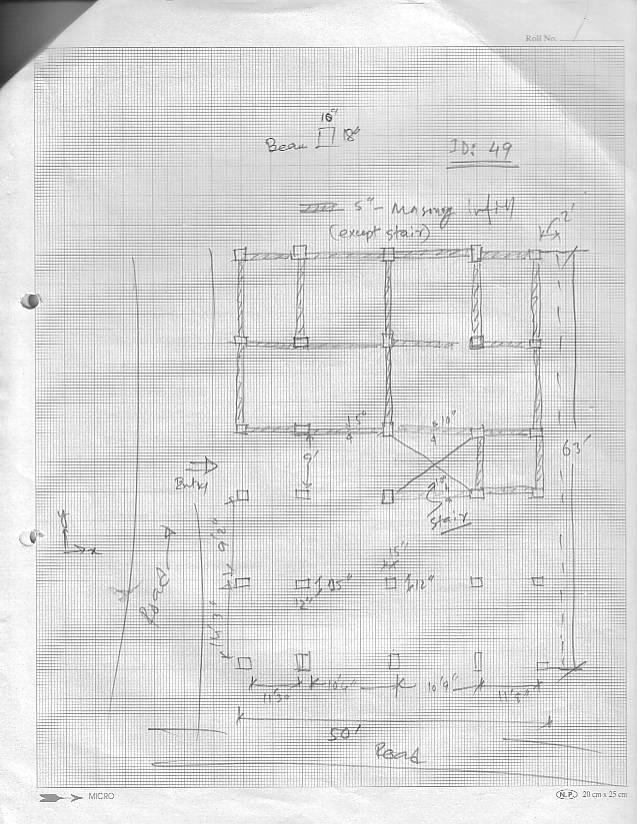 Roll No.
10"
Beam 18"
ID: 49
5" - Masonry infill
(except stair)
2'
5"
10"
63'
9'
Entry
Stair
y
x
Road
15"
15"
12"
12"
11'3"
10'9"
50'
Road
MICRO
N.P. 20 cm x 25 cm